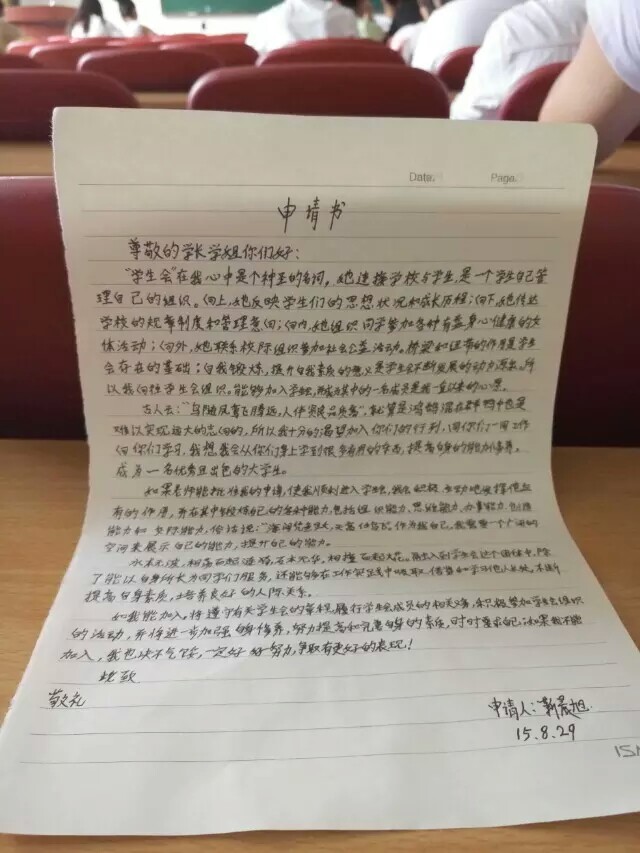 Date.
Page.
申请书
尊敬的学长学姐你们好：
"学生会"在我心中是个神圣的名词，她连接学校与学生，是一个学生自己管
理自己的组织。向上，她反映学生们的思想状况和成长历程；向下，她传达
学校的规章制度和管理意向；向内，她组织同学参加各种有益身心健康的文
体活动；向外，她联系校际组织参加社会公益活动。桥梁和纽带的作用是学生
会存在的基础；自我锻炼，提升自我素质的意义是学生会不断发展的动力源出。所
以我向往学生会组织，能够加入学生会，而成为其中的一名成员是我一直以来的心愿。
古人云："鸟随凤鸾飞腾远，人伴贤良品质高"，就算是鸿鹄混在群鸭中也是
难以实现远大的志向的，所以我十分的渴望加入你们的行列，同你们一同工作
向你们学习，我想我会从你们身上学到很多有用的东西，提高自身的能力修养。
成为一名优秀且出色的大学生。
如果老师能批准我的申请，使我顺利进入学生会，我会积极、主动地发挥应
有的作用，并在其中锻炼自己的各种能力，包括组织能力、思维能力、办事能力、创造
能力和交际能力，俗话说："海阔凭鱼跃，天高任鸟飞。作为我自己，我需要一个广阔的
空间来展示自己的能力，提升自己的能力。
水本无波，相荡而起涟漪，石本无华，相撞而起火花。
了能以自身所长为同学们服务，还能够在工作实践中吸取、借鉴和学习他人长处。不断
提高自身素质，培养良好的人际关系。
如我能加入，将遵守有关学生会的章程，履行学生会成员的相关义务，积极参加学生会组织
的活动，并将进一步加强自身修养，努力提高和完善自身的素质，时时要求自己；如果我不能
加入，我也决不气馁，一定好好努力，争取有更好的表现！
此致
敬礼
申请人：靳晨旭
15.8.29